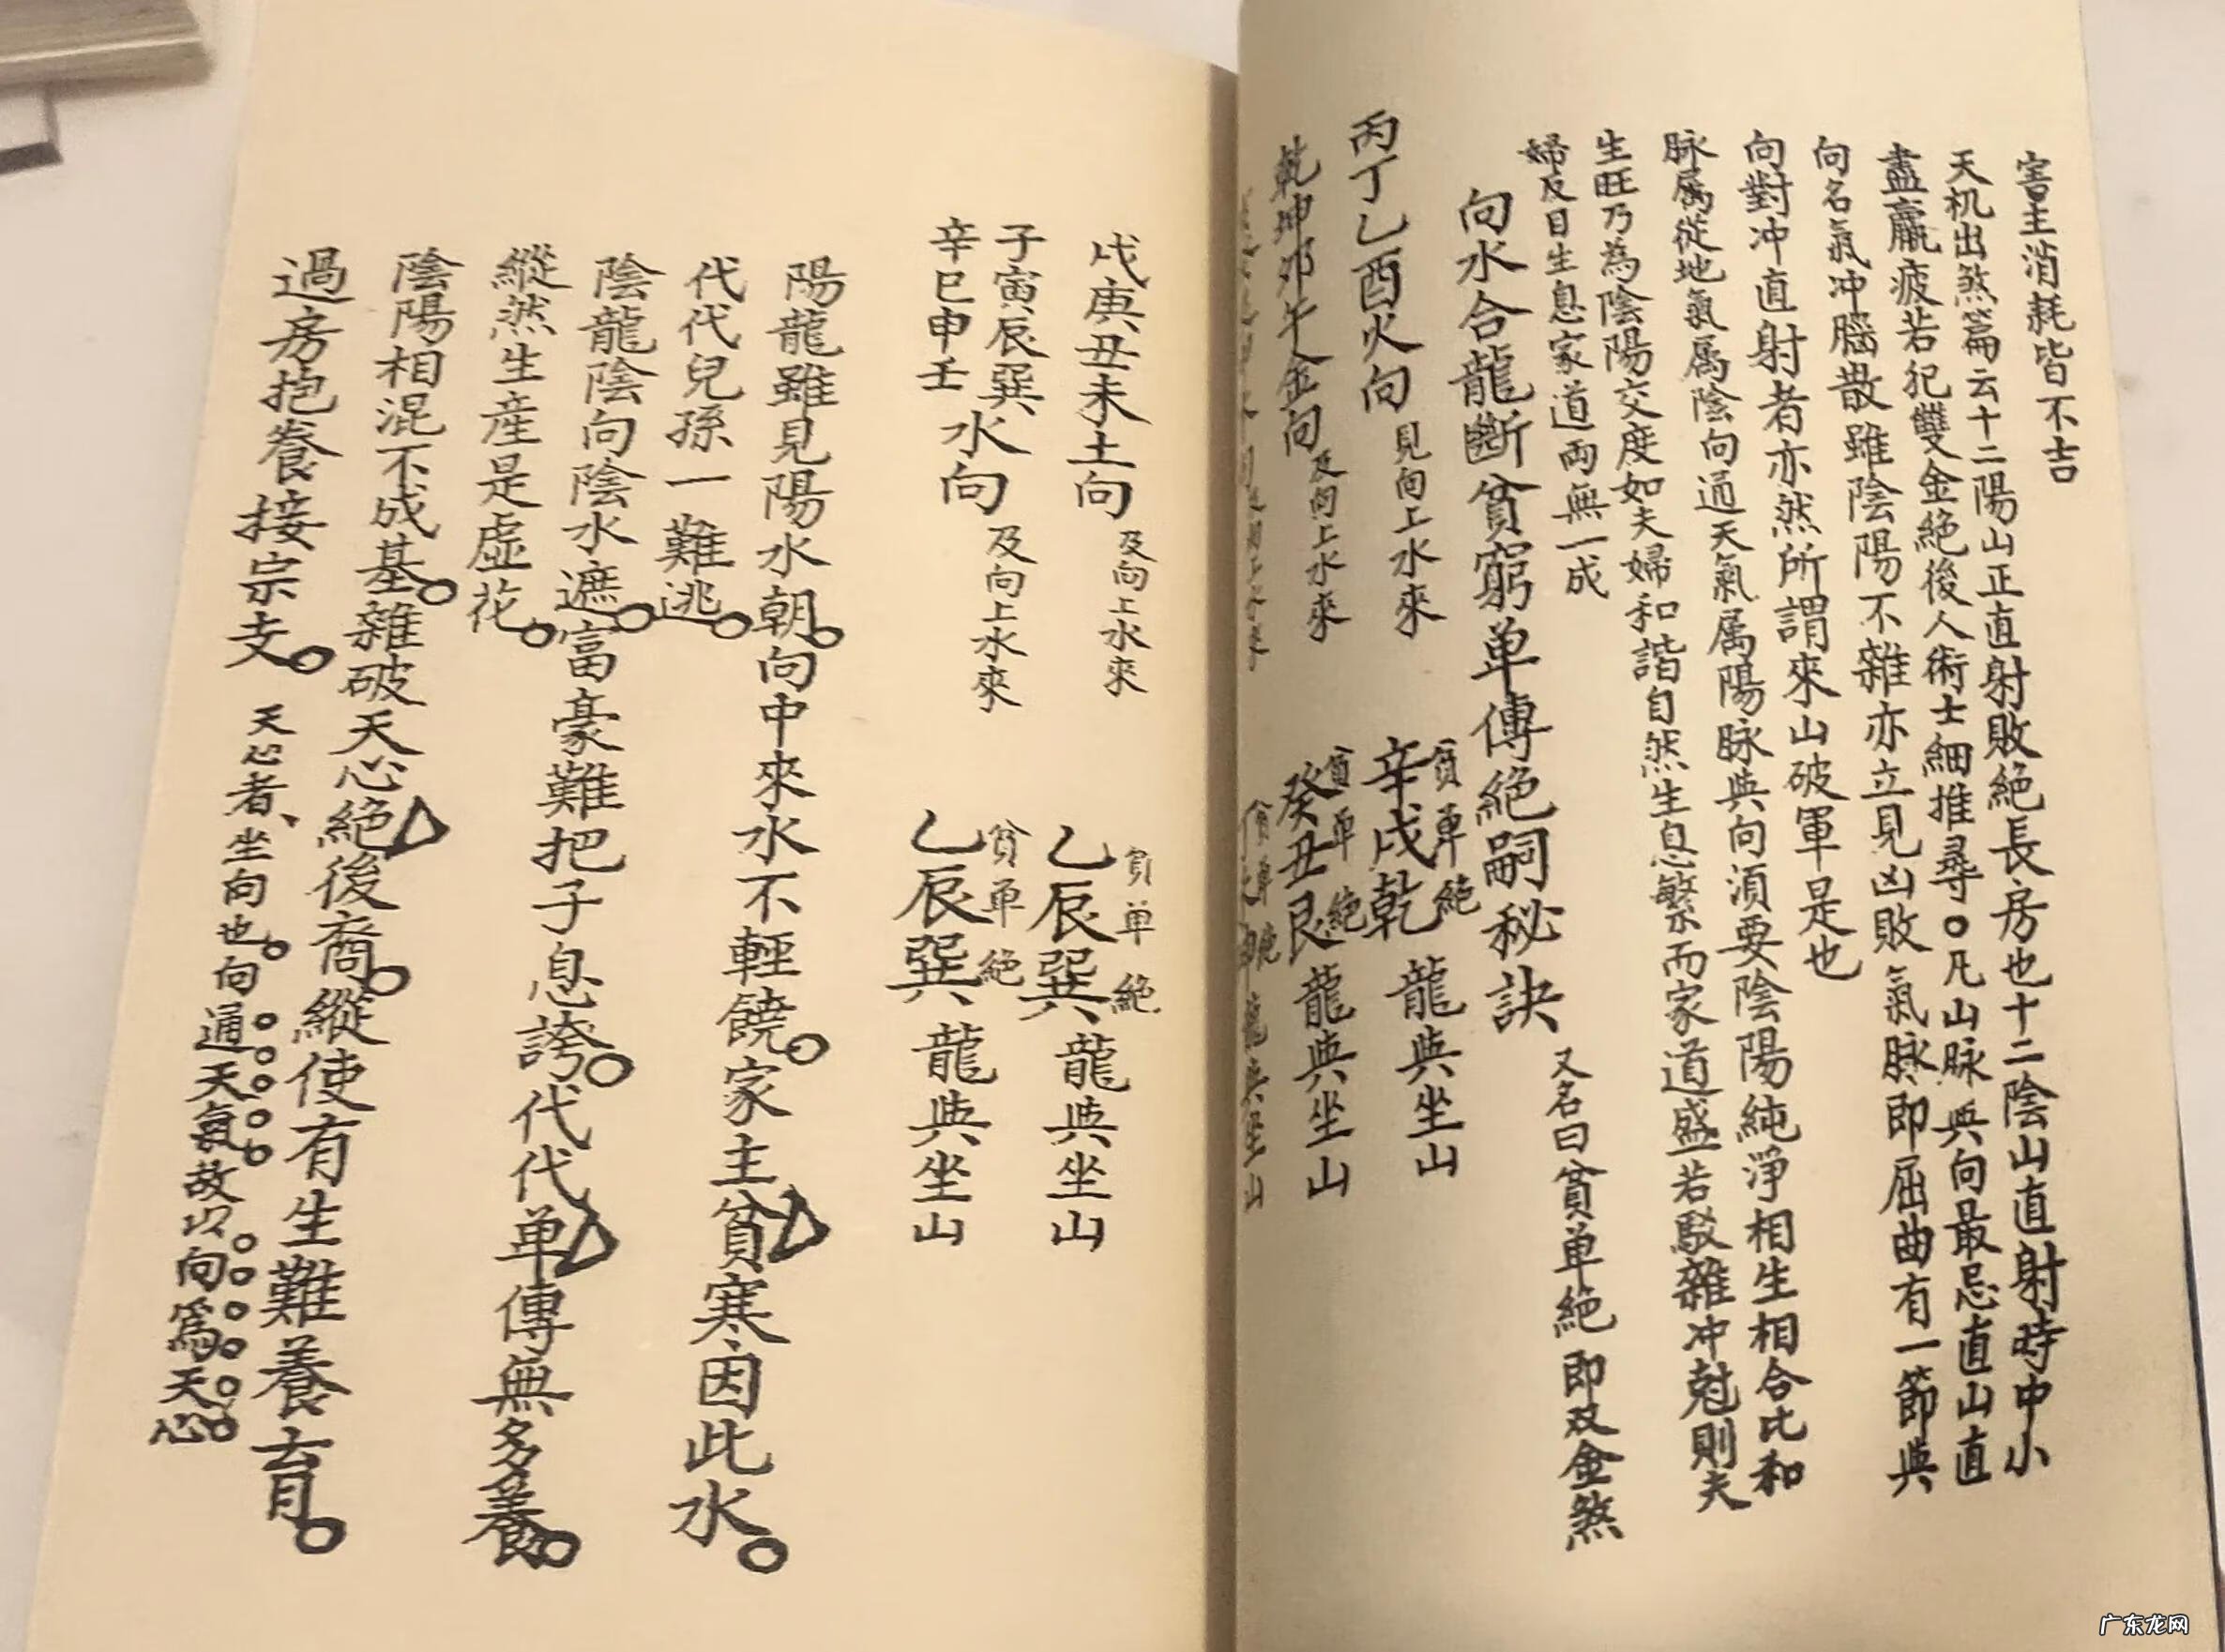 害主消耗皆不吉
天机出煞篇云十二陽山正直射敗絕長房也十二陰山直射時中小
盡羸疲若犯雙金絕後人術士細推尋○凡山脉與向最忌直山直
向名氣冲腦散雖陰陽不雜亦立見凶敗氣脉即屈曲有一節與
向對冲直射者亦然所謂來山破軍是也
脉屬從地氣屬陰向通天氣屬陽脉與向須要陰陽純淨相生相合比和
生旺乃為陰陽交度如夫婦和諧自然生息繁而家道盛若駁雜冲尅則夫
婦反目生息家道両無一成
向水合龍斷貧窮单傳絕嗣秘訣 又名曰貧单絕即双金煞
丙丁乙酉火向 見向上水來 貧单絕 辛戌乾龍與坐山
乾坤卯午金向 及向上水來 貧单絕 癸丑艮龍與坐山
戊庚丑未土向 及向上水來 貧单絕 乙辰巽龍與坐山
子寅辰巽
辛巳申壬 水向 及向上水來 貧单絕 乙辰巽龍與坐山
陽龍雖見陽水朝○向中來水不輕饒○家主貧寒因此水○
代代兒孫一難逃○
陰龍陰向陰水遮○富豪難把子息誇○代代单傳無多養○
縱然生産是虛花○
陰陽相混不成基○雜破天心絕後裔○縱使有生難養育○
過房抱養接宗支○ 天心者、坐向也○向通天氣故以向爲天心
广东龙网